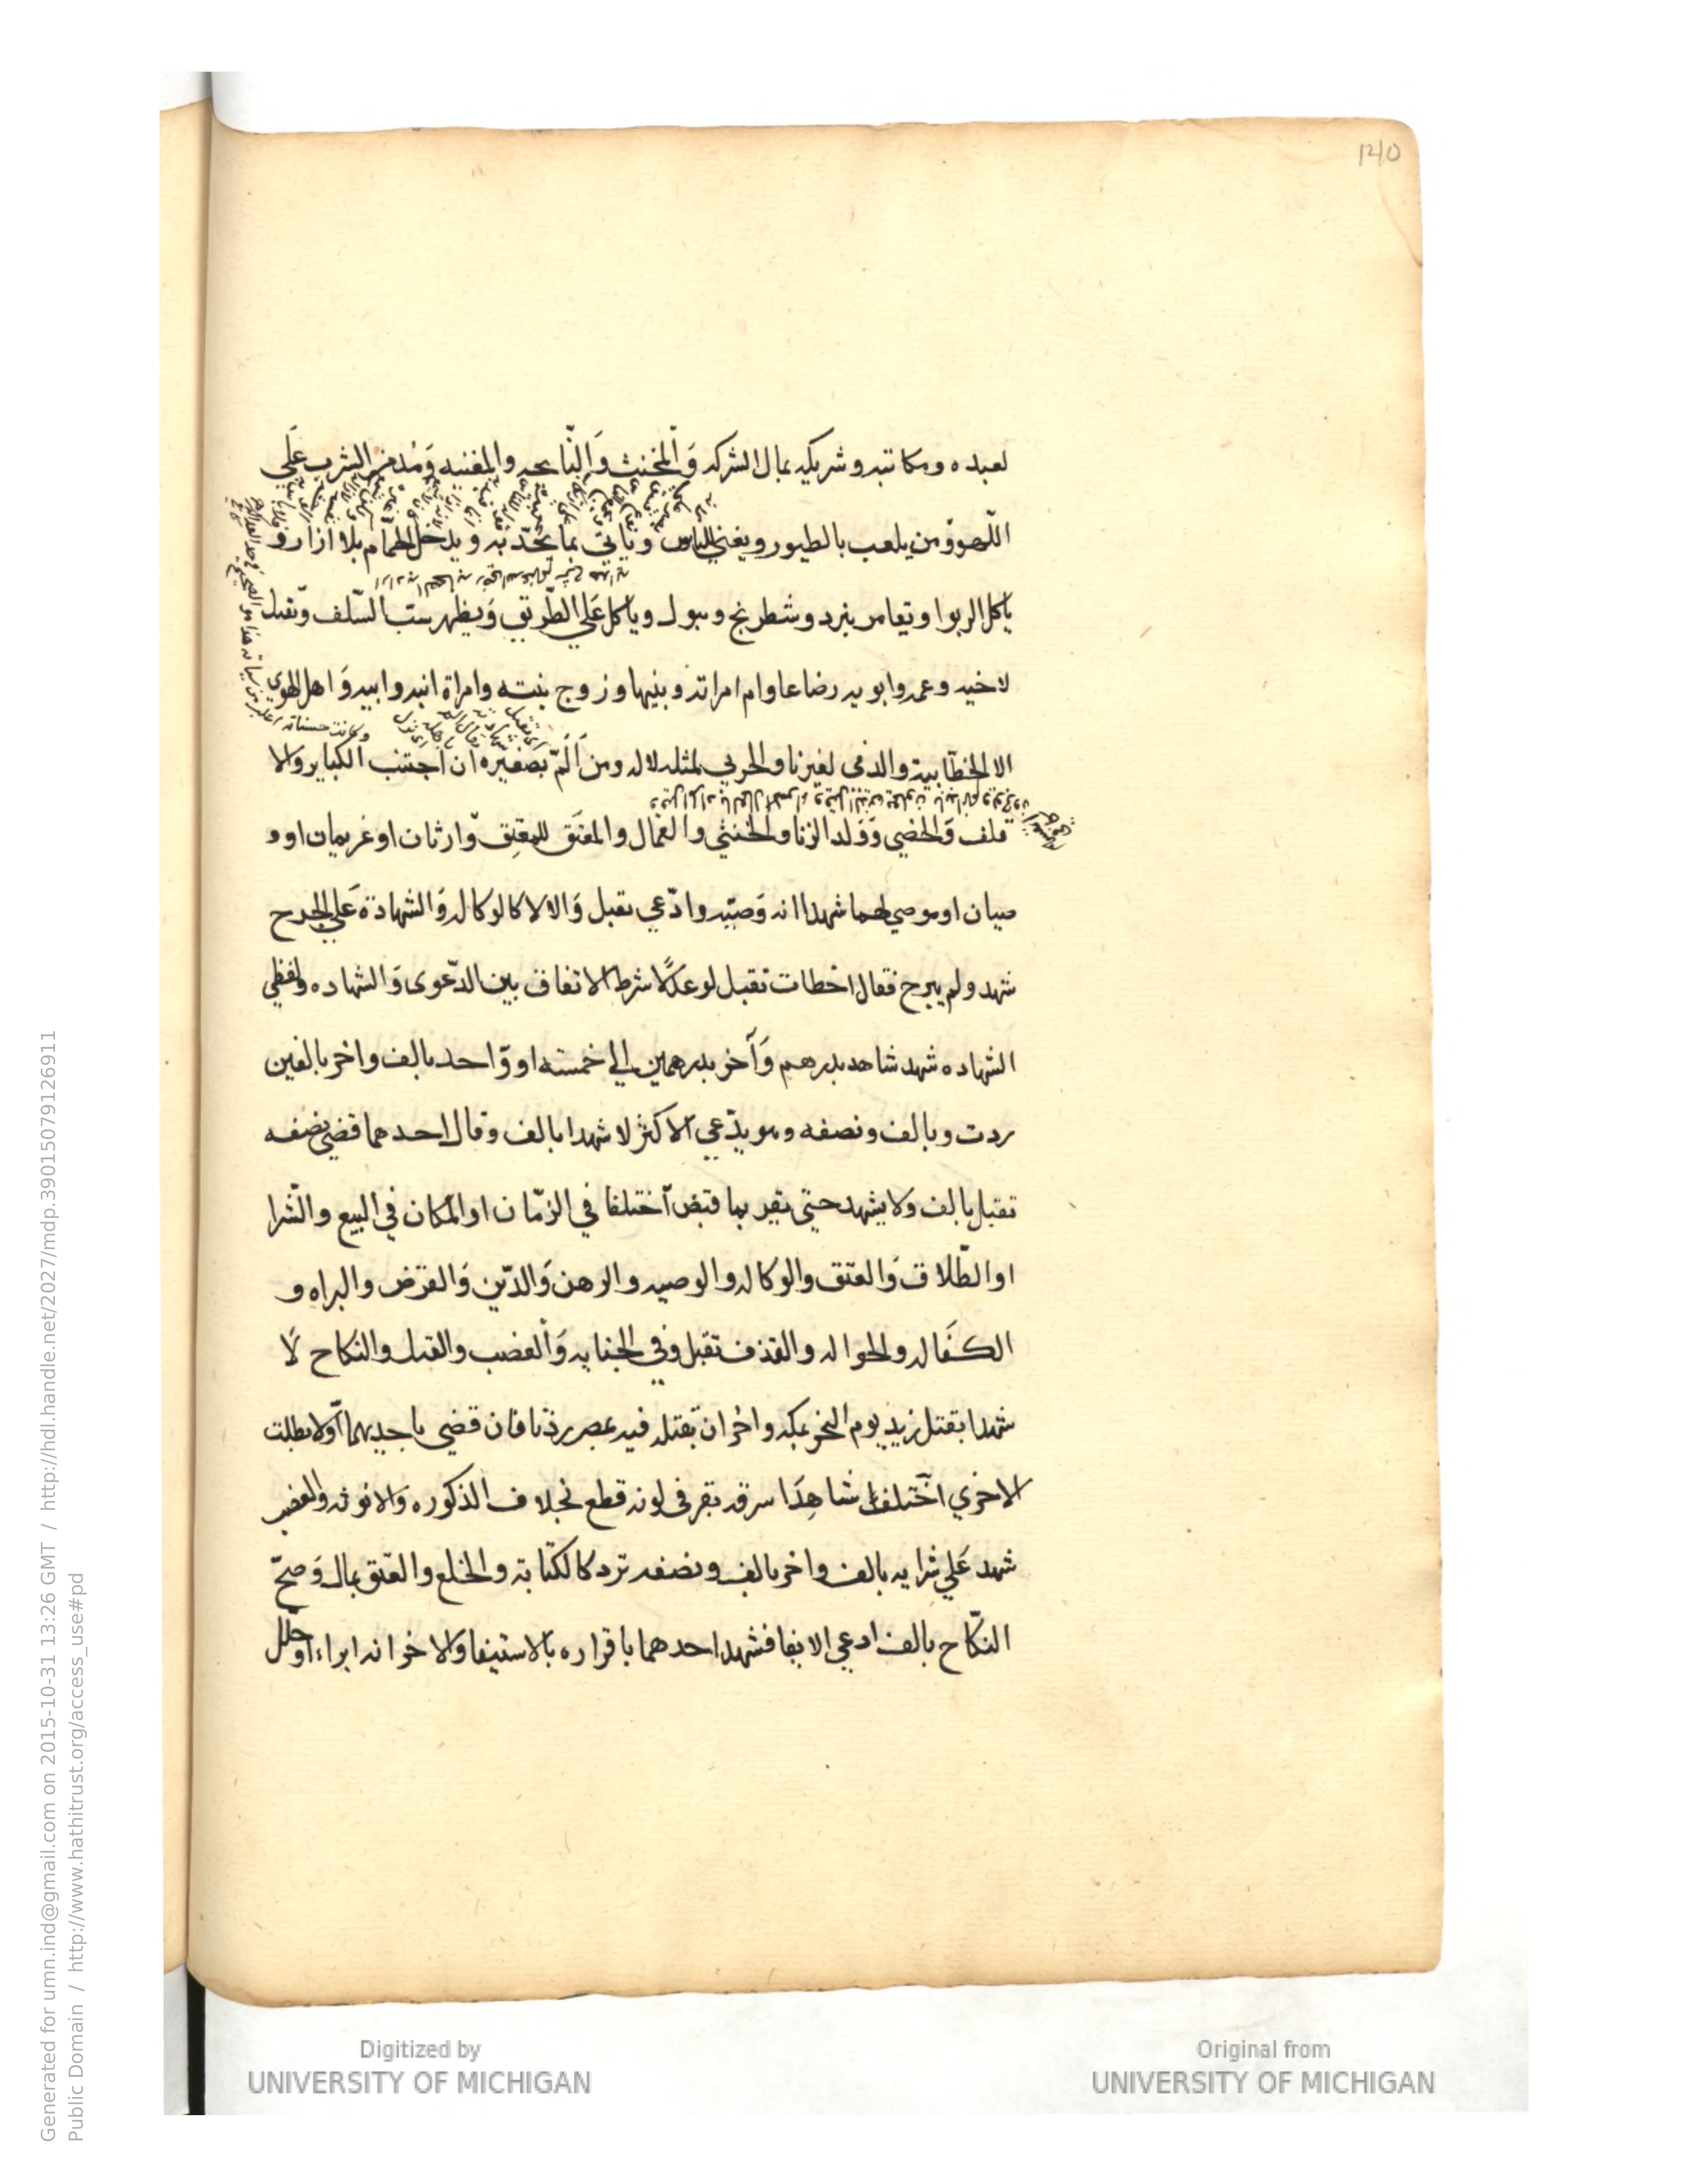 140
لعبده ومكاتبه وشريكه بمال الشركه وَالمخنث وَالنّايحه والمغنيه وَمُدمن الشرب عَلَى
اللّهو وَمن يلعب بالطيور ويغني للناس وياتي بما يحدّ به ويدخل الحمام بلا ازار و
ياكل الربوا ويقامر بنرد وشطرنج ويبول وياكل عَلي الطّريق وَيظهر سبّ السّلف وَتقبل
لاخيه وعمه وابويه رضاعا وام امراته وبنيها وزوج بنته وامراة ابنه وابيه وَاهل الهوى
الا الخطّابية والذمي لغيرنا والحربي لمثله لا له ومن اَلَمّ بصغيره ان اجتنب الكباير والا
قلف وَالخصي وَوَلد الزنا والخنثي والعمال والمعتَق للمعتِق وّارثان او غريمان او و
صيان او موصي لهما شهدا انه وَصيّه وادّعي تقبل وَالا لا كالوكاله وَالشهادة عَلي الجرح
شهد ولم يبرح فقال اخطات تقبل لو عدلًا شرط الاتفاق بين الدّعوى وَالشهاده ولفظي
الشهاده شهد شاهد بدرهم وَآخر بدرهمين الي خمسته او وَاحد بالف واخر بالفين
ردت وبالف ونصفه وهو يدّعي الاكثر لا شهدا بالف وقال احدهما قضي نصفه
تقبل بالف ولا يشهد حتى يقر بما قبض اَختلفا في الزمان او المكان في البيع والشرا
او الطّلاق وَالعتق والوكاله والوصيه والرهن وَالدّين وَالقرض والبراه و
الكفَاله والحواله والقذف تقبل وفي الجنايه وَالغصب والقتل والنكاح لَا
شهدا بقتل زيد يوم النحر بمكه واخران بقتله فيه بمصر ردّتا فان قضي باحديهما اَوّلا بطلت
الاخري اختلف شاهدَا سرقه بقر في لونه قطع بخلاف الذكوره وَالانوثه والغصب
شهد عَلي شرايه بالف واخر بالف ونصفه ترد كالكتابة والخلع والعتق بمال وَصحّ
النكّاح بالف ادعي الايفا فشهد احدهما باقراره بالاستيفا وَالاخر انه ابراه او حلل
Digitized by
UNIVERSITY OF MICHIGAN
Original from
UNIVERSITY OF MICHIGAN
Generated for umn.ind@gmail.com on 2015-10-31 13:26 GMT / http://hdl.handle.net/2027/mdp.39015079126911
Public Domain / http://www.hathitrust.org/access_use#pd